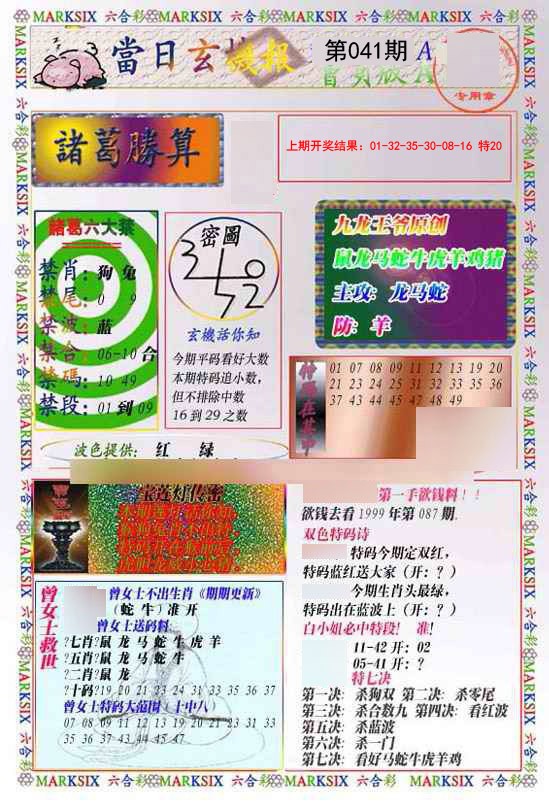 MARKSIX 六合彩 MARKSIX 六合彩 MARKSIX 六合彩 MARKSIX 六合彩
當日玄機报
第041期 A
专用章
諸葛勝算
上期开奖结果: 01-32-35-30-08-16 特20
諸葛六大禁
禁肖: 狗 兔
禁尾: 0 9
禁波: 蓝
禁合: 06-10 合
禁碼: 10 49
禁段: 01 到 09
密圖
玄機話你知
今期平码看好大数
本期特码追小数,
但不排除中数
16 到 29 之数
九龙王爷原创
鼠龙马蛇牛虎羊鸡猪
主攻: 龙马蛇
防: 羊
01 07 08 09 11 12 13 19 20
21 23 24 25 31 32 33 35 36
37 43 44 45 47 48 49
波色提供: 红 绿
宝莲灯传密
曾女士救世
曾女士不出生肖《期期更新》
(蛇 牛) 准 开
曾女士送码料:
?七肖?鼠 龙 马 蛇 牛 虎 羊
?五肖?鼠 龙 马 蛇 牛
?二肖?鼠 龙
?十码?19 20 21 23 24 31 33 35 36 37
曾女士特码大范围 (十中八)
07 08 09 11 12 13 19 20 21 23 31 33
35 36 37 43 44 45 47
第一手欲钱料!!
欲钱去看 1999 年第 087 期.
双色特码诗
特码今期定双红,
特码蓝红送大家 (开: ?)
今期生肖头最绿,
特码出在蓝波上 (开: ?)
白小姐必中特段! 准!
11-42 开: 02
05-41 开: ?
特七决
第一决: 杀狗双 第二决: 杀零尾
第三决: 杀合数九 第四决: 看红波
第五决: 杀蓝波
第六决: 杀一门
第七决: 看好马蛇牛虎羊鸡
MARKSIX 六合彩 MARKSIX 六合彩 MARKSIX 六合彩 MARKSIX 六合彩